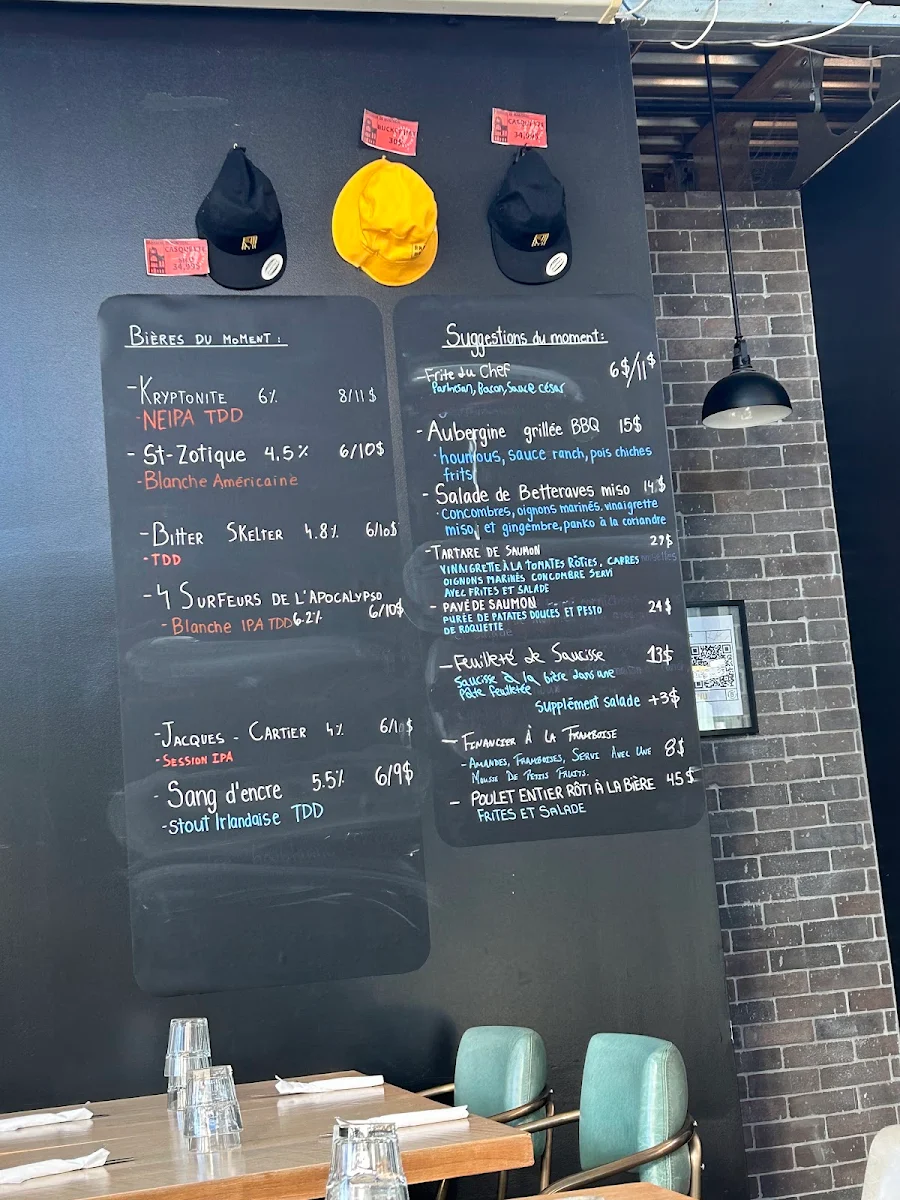 BUCKET HAT
30$
CASQUETTE
34,99$
CASQUETTE
34,99$
BIÈRES DU MOMENT :
-KRYPTONITE 6% 8/11$
-NEIPA TDD
-St-Zotique 4.5% 6/10$
-Blanche Américaine
-BITTER SKELTER 4.8% 6/10$
-TDD
-4 SURFEURS DE L'APOCALYPSO
-Blanche IPA TDD 6.2% 6/10$
-JACQUES-CARTIER 4% 6/10$
-SESSION IPA
-Sang d'encre 5.5% 6/9$
-stout Irlandaise TDD
Suggestions du moment:
Frite du Chef 6$/11$
Parmesan, Bacon, Sauce césar
-Aubergine grillée BBQ 15$
·houmous, sauce ranch, pois chiches
frits
-Salade de Betteraves miso 14$
·concombres, oignons marinés, vinaigrette
miso, et gingembre, panko à la coriandre
-TARTARE DE SAUMON 29$
VINAIGRETTE À LA TOMATES RÔTIES, CAPRES
OIGNONS MARINÉS CONCOMBRE SERVI
AVEC FRITES ET SALADE
-PAVÉ DE SAUMON 24$
PURÉE DE PATATES DOUCES ET PESTO
DE ROQUETTE
-Feuilleté de Saucisse 13$
Saucisse à la bière dans une
Pâte feuilletée
Supplément salade +3$
-FINANCIER À LA FRAMBOISE 8$
-AMANDES, FRAMBOISES, SERVI AVEC UNE
MOUSSE DE PETITS FRUITS.
- POULET ENTIER RÔTI À LA BIÈRE 45$
FRITES ET SALADE